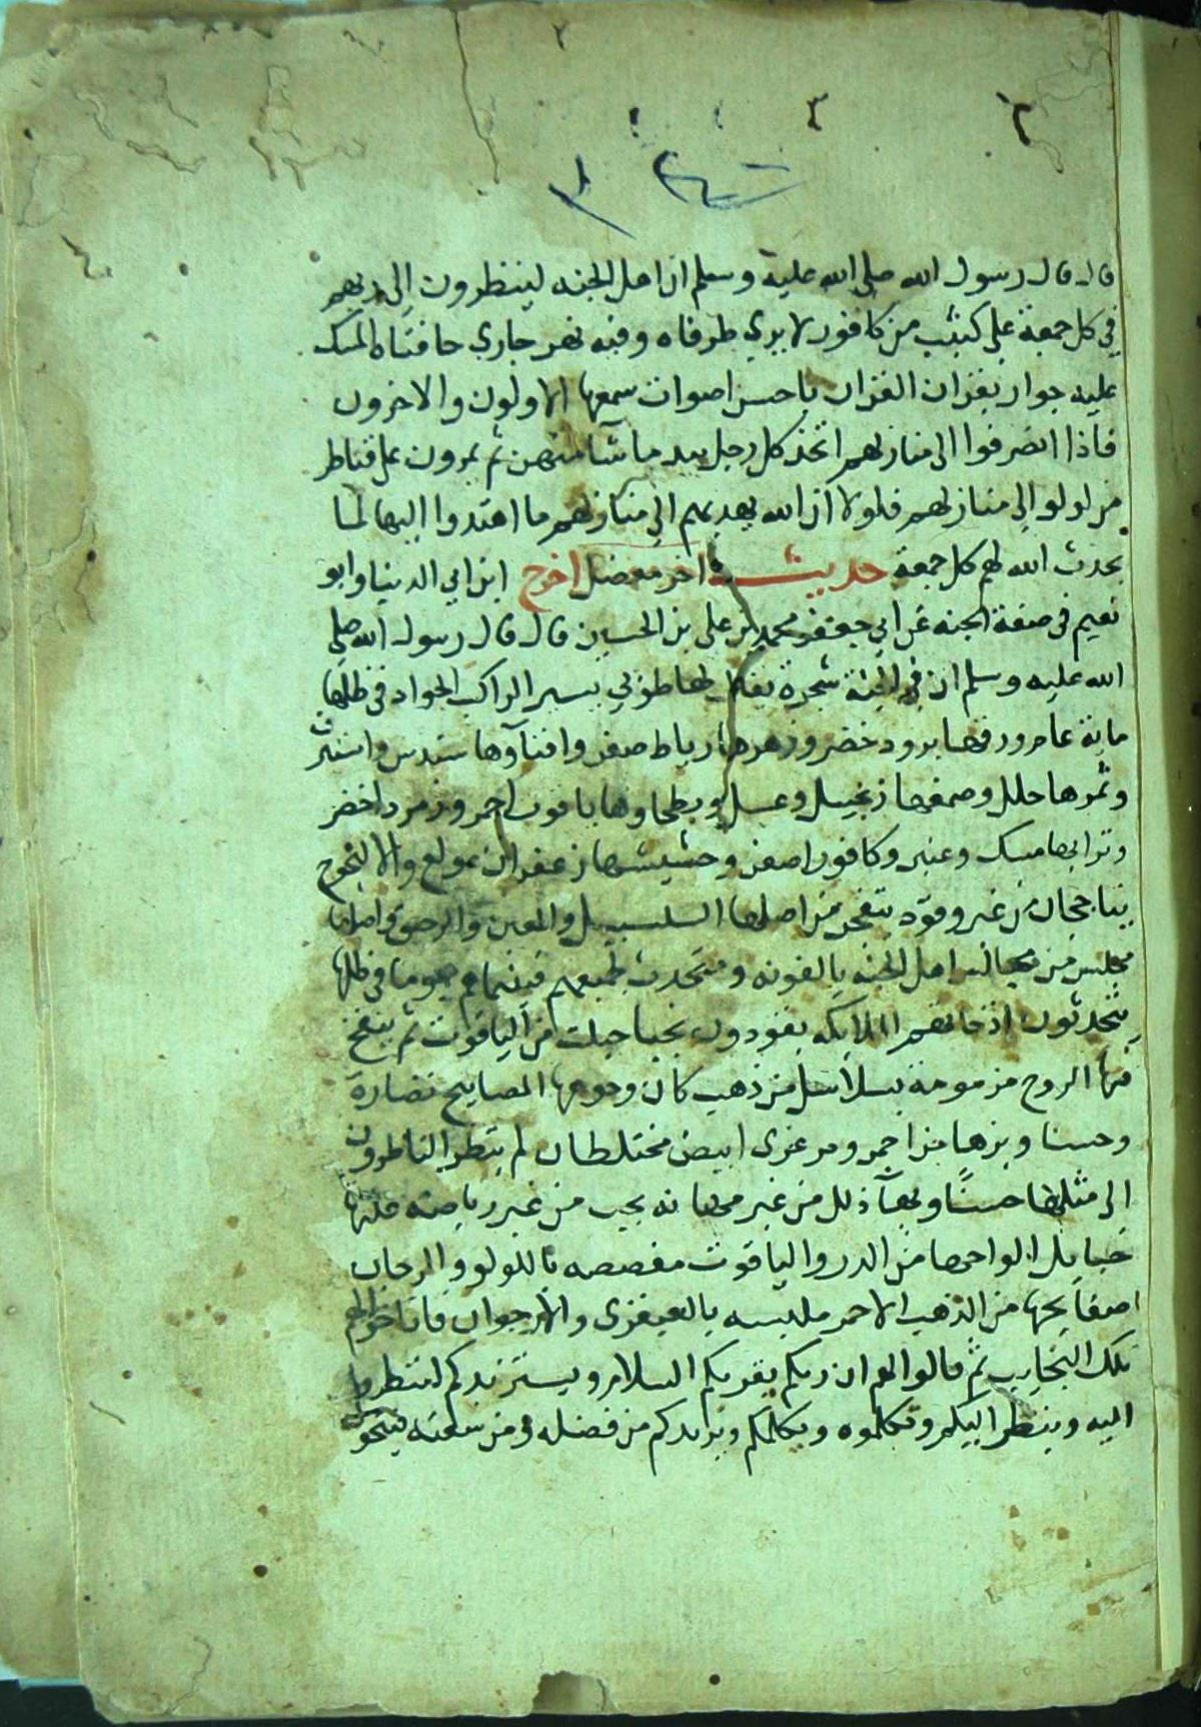 قال قال رسول الله صلى الله عليه وسلم ان اهل الجنه لينظرون الى ربهم
في كل جمعة على كثيب من كافور لا يري طرفاه وفيه نهر جاري حافتاه المسك
عليه جوار يقران القران باحسن اصوات سمعها الاولون والاخرون
فاذا انصرفوا الى منازلهم اتخذ كل رجل بيد ما شا منهن ثم يمرون على قناطر
من لولو الى منازلهم فلولا ان الله يهديهم الى منازلهم ما اهتدوا اليها لما
يحدث الله لهم كل جمعة حديث اخر معضل اخرج ابن ابي الدنيا وابو
نعيم في صفة الجنه عن ابي جعفر محمد بن على بن الحسين قال قال رسول الله صلى
الله عليه وسلم ان في الجنة شجرة يقال لها طوبي يسير الراكب الجواد في ظلها
ماية عام ورقها برود خضر وزهرها رياط صفر وافناؤها سندس واستبرق
وثمرها حلل وصمغها زنجبيل وعسل وبطحاوها ياقوت احمر وزمرد اخضر
وترابها مسك وعنبر وكافور اصفر وحشيشها زعفران مولع والالنجوج
يتاججان من غير وقود يتفجر من اصلها السلسبيل والمعين والرحيق في اصلها
مجلس من مجالس اهل الجنه يالفونه ومتحدث لجمعهم فبينما هم يوما في ظلها
يتحدثون اذ جاتهم الملايكه يقودون نجبا جبلت من الياقوت ثم ينفخ
فيها الروح مزمومة بسلاسل من ذهب كان وجوهها المصابيح نضارة
وحسنا وبرها خز احمر ومرعزى ابيض مختلطان لم ينظر الناظرون
الى مثلها حسنًا وبهآ ذلل من غير مهانه نجب من غير رياضه عليها
الواحها من الدر والياقوت مفصصه باللولو والمرجان
صفايحها من الذهب الاحمر ملبسه بالعبقرى والارجوان فاناخوا لهم
تلك النجايب ثم قالوا لهم ان ربكم يقريكم السلام ويستزيدكم لتنظروا
اليه وينظر اليكم وتكلموه ويكلمكم ويزيدكم من فضله ومن سعته